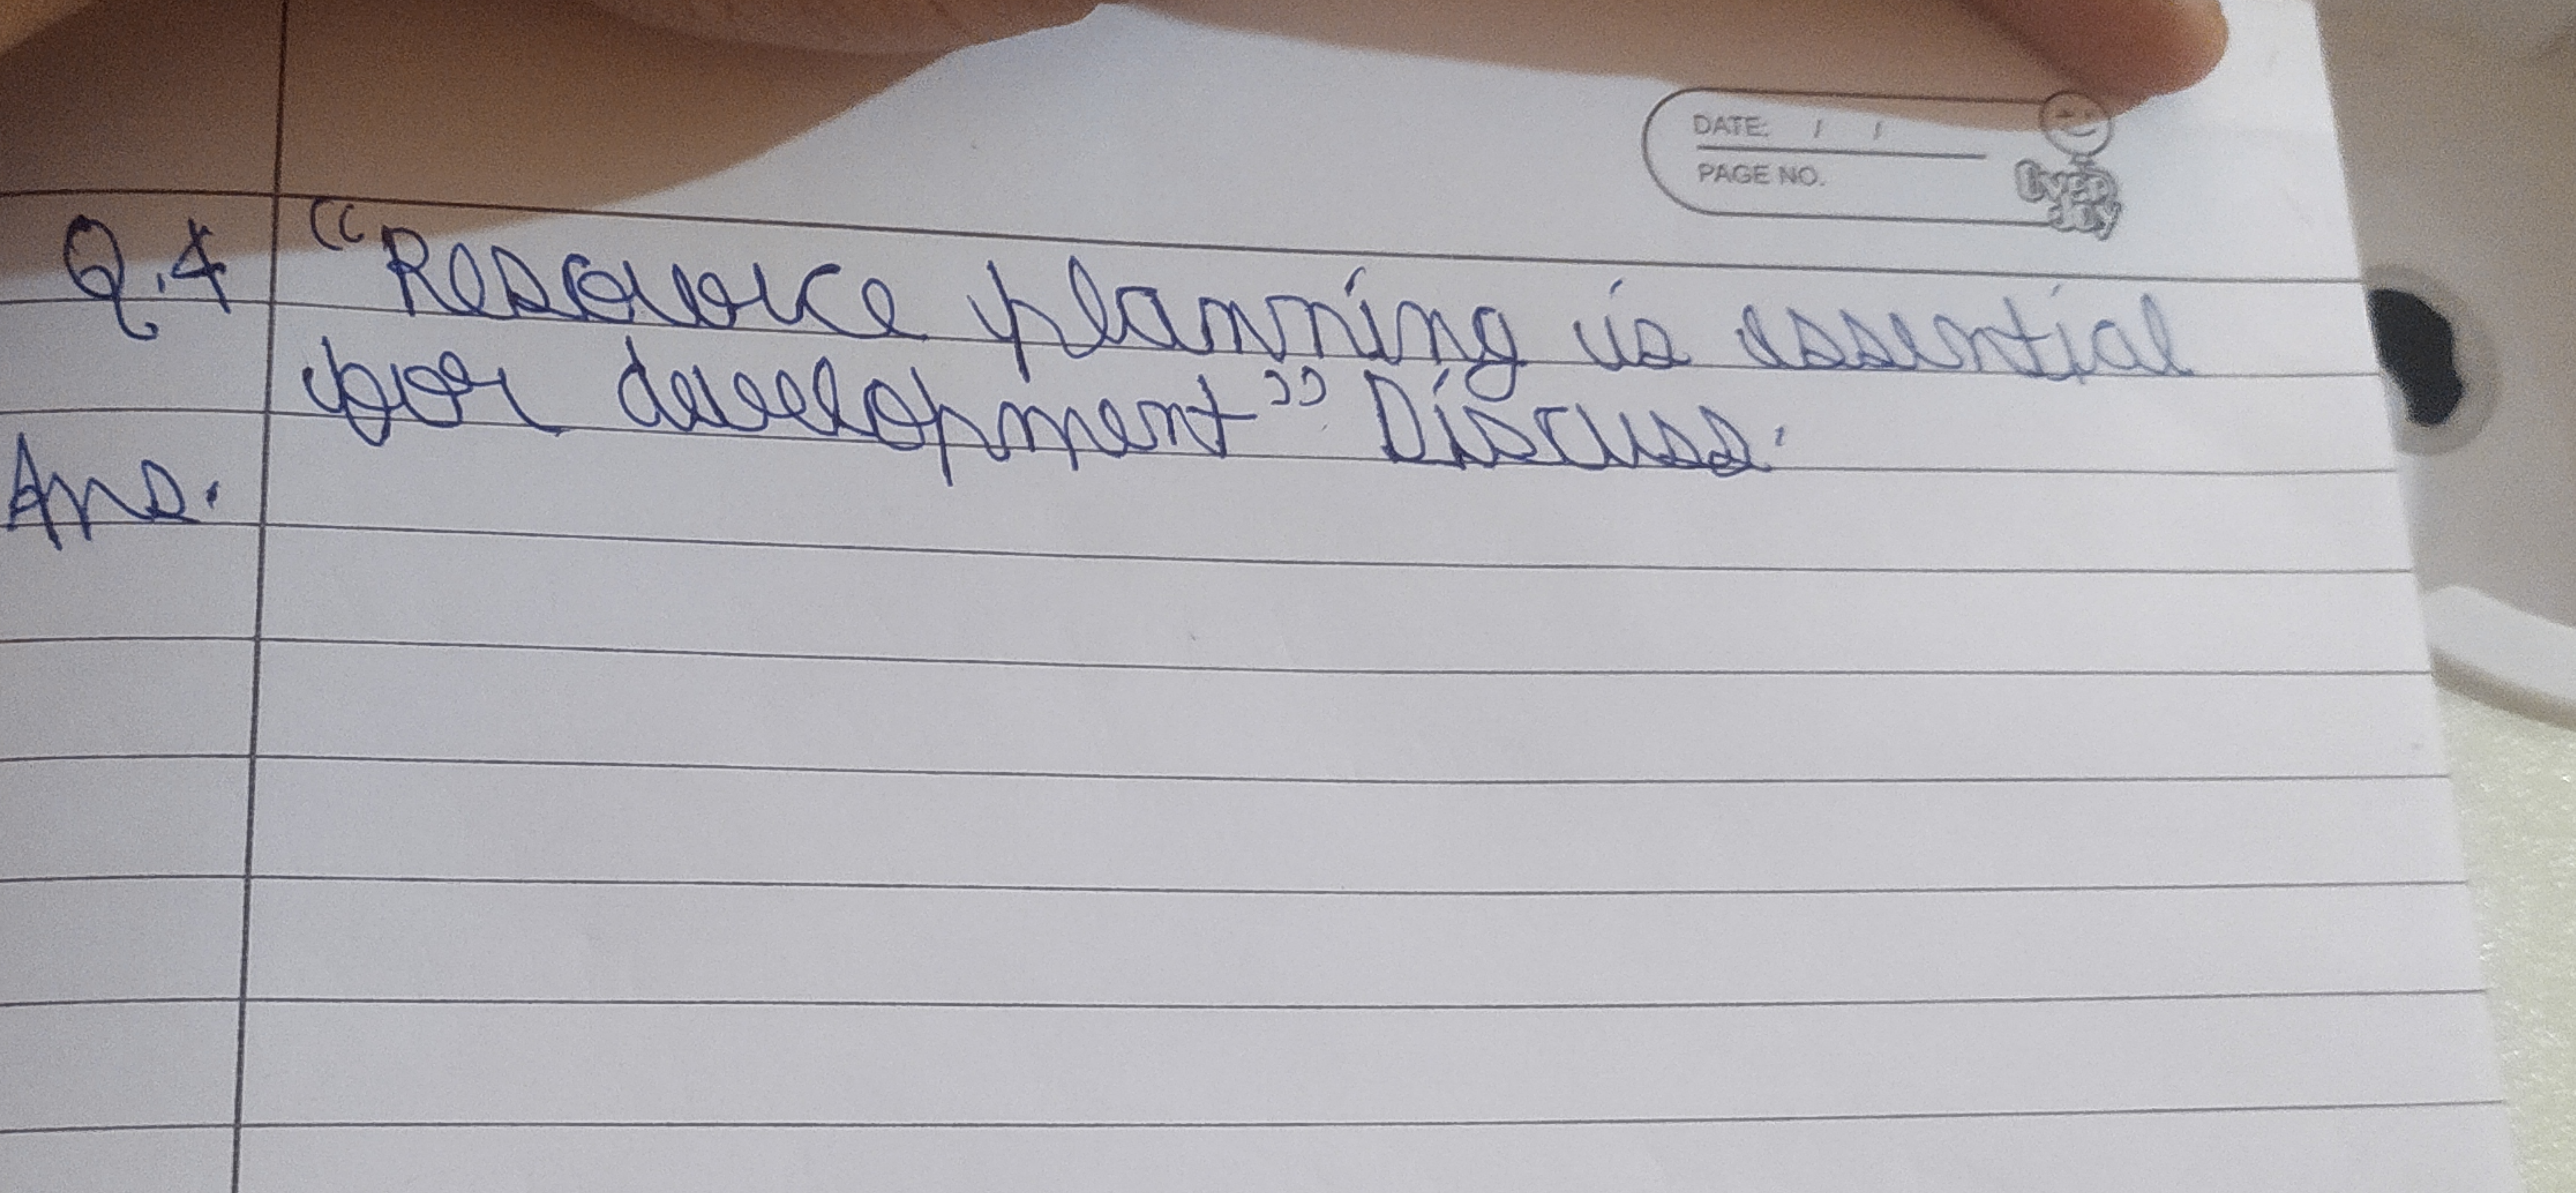 DATE: / /
PAGE NO.
Every
day
Q.4 "Resource planning is essential
for development" Discuss.
Ans.